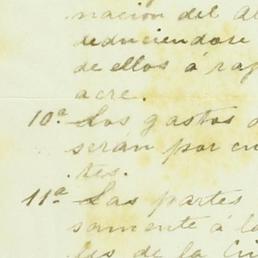 nación del
reduciendose
de ellos á
acre.
10ª. Los gastos
serán por
tes.
11ª. Las partes
samente á la
de la